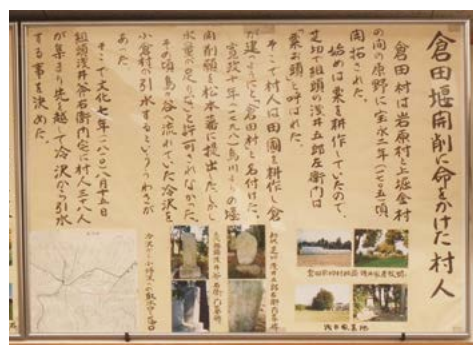 倉田堰開削に命をかけた村人
倉田村は岩原村と上堀金村
の間の原野に宝永二年(一七〇五)頃
開拓された。
始めは粟を耕作していたので、
芝切で組頭の浅井五郎左衛門は
「粟お頭」と呼ばれた。
そこで村人は田圃を耕作し倉
が建つようにと「倉田村」と名付けた。
寛政十年(一七九八)烏川よりの堰
開削願を松本藩に提出したが
水量が足りないと許可されなかった。
その頃烏の谷へ流れていた冷沢を
小倉村が引水するといううわさが
あった
そこで文化七年(一八一〇)八月十五日
組頭浅井斧右衛門宅に村人三十八人
が集まり先を越して冷沢から引水
する事を決めた。
浅井家墓地